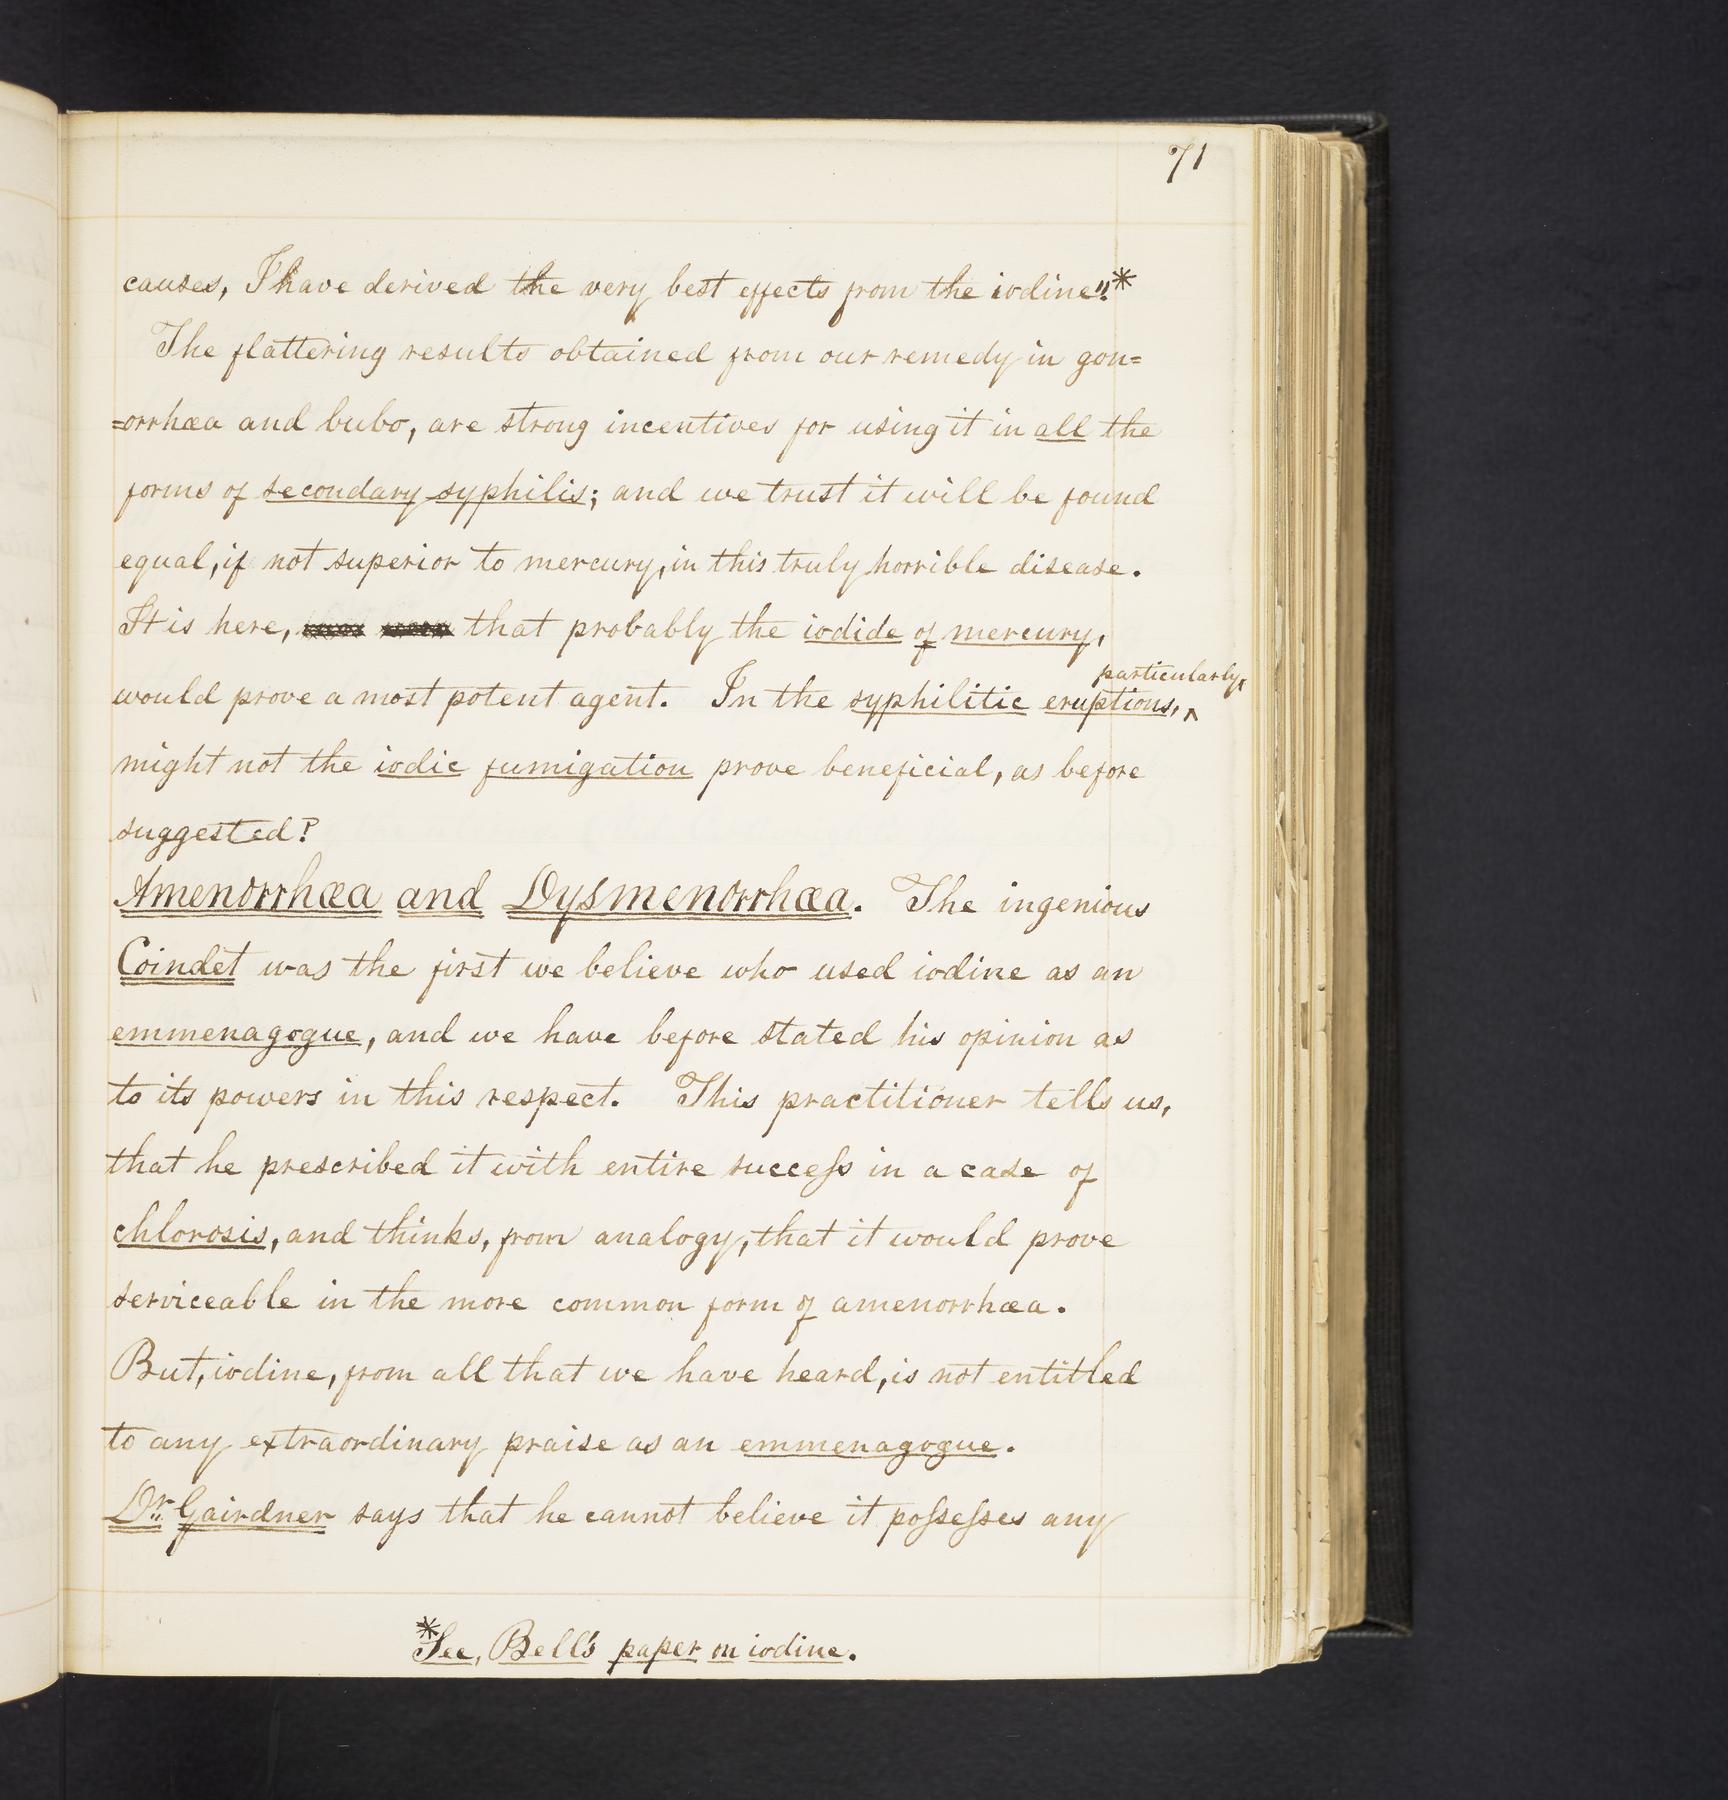 71
causes, I have derived the very best effects from the iodine".*
The flattering results obtained from our remedy in gon=
=orrhœa and bubo, are strong incentives for using it in all the
forms of secondary syphilis; and we trust it will be found
equal, if not superior to mercury, in this truly horrible disease.
It is here, that probably the iodide of mercury,
would prove a most potent agent. In the syphilitic eruptions, ^ particularly,
might not the iodic fumigation prove beneficial, as before
suggested?
Amenorrhœa and Dysmenorrhœa. The ingenious
Coindet was the first we believe who used iodine as an
emmenagogue, and we have before stated his opinion as
to its powers in this respect. This practitioner tells us,
that he prescribed it with entire succeſs in a case of
chlorosis, and thinks, from analogy, that it would prove
serviceable in the more common form of amenorrhœa.
But, iodine, from all that we have heard, is not entitled
to any extraordinary praise as an emmenagogue.
Dr. Gairdner says that he cannot believe it poſseſses any
*See, Bell's paper on iodine.